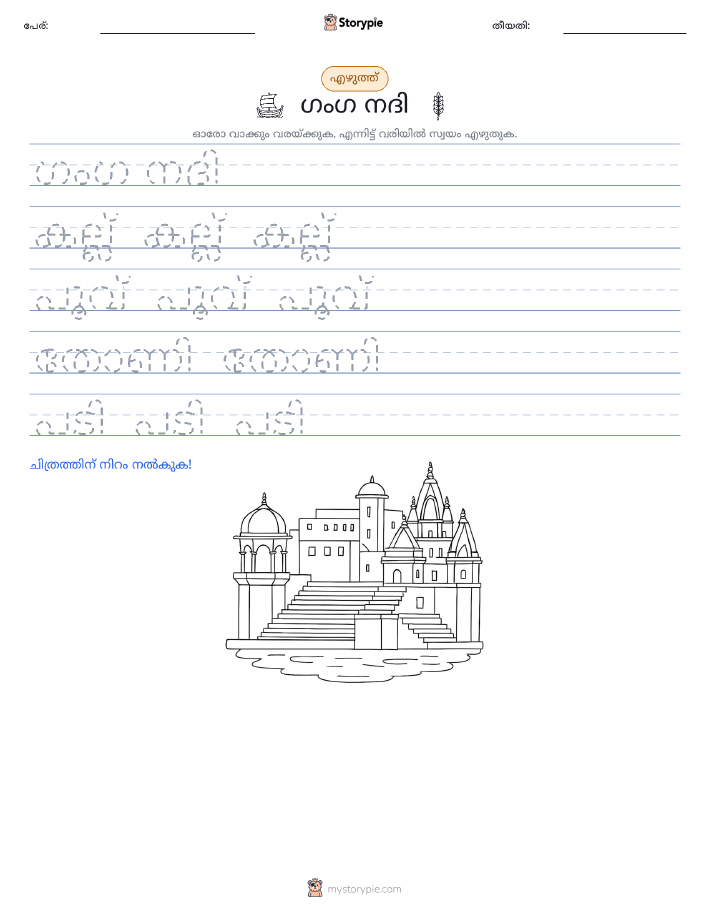 പേര്:
Storypie
തീയതി:
എഴുത്ത്
ഗംഗ നദി
ഓരോ വാക്കും വരയ്ക്കുക, എന്നിട്ട് വരിയിൽ സ്വയം എഴുതുക.
ഗംഗ നദി
കല്ല് കല്ല് കല്ല്
പൂവ് പൂവ് പൂവ്
തോണി തോണി
പടി പടി പടി
ചിത്രത്തിന് നിറം നൽകുക!
mystorypie.com